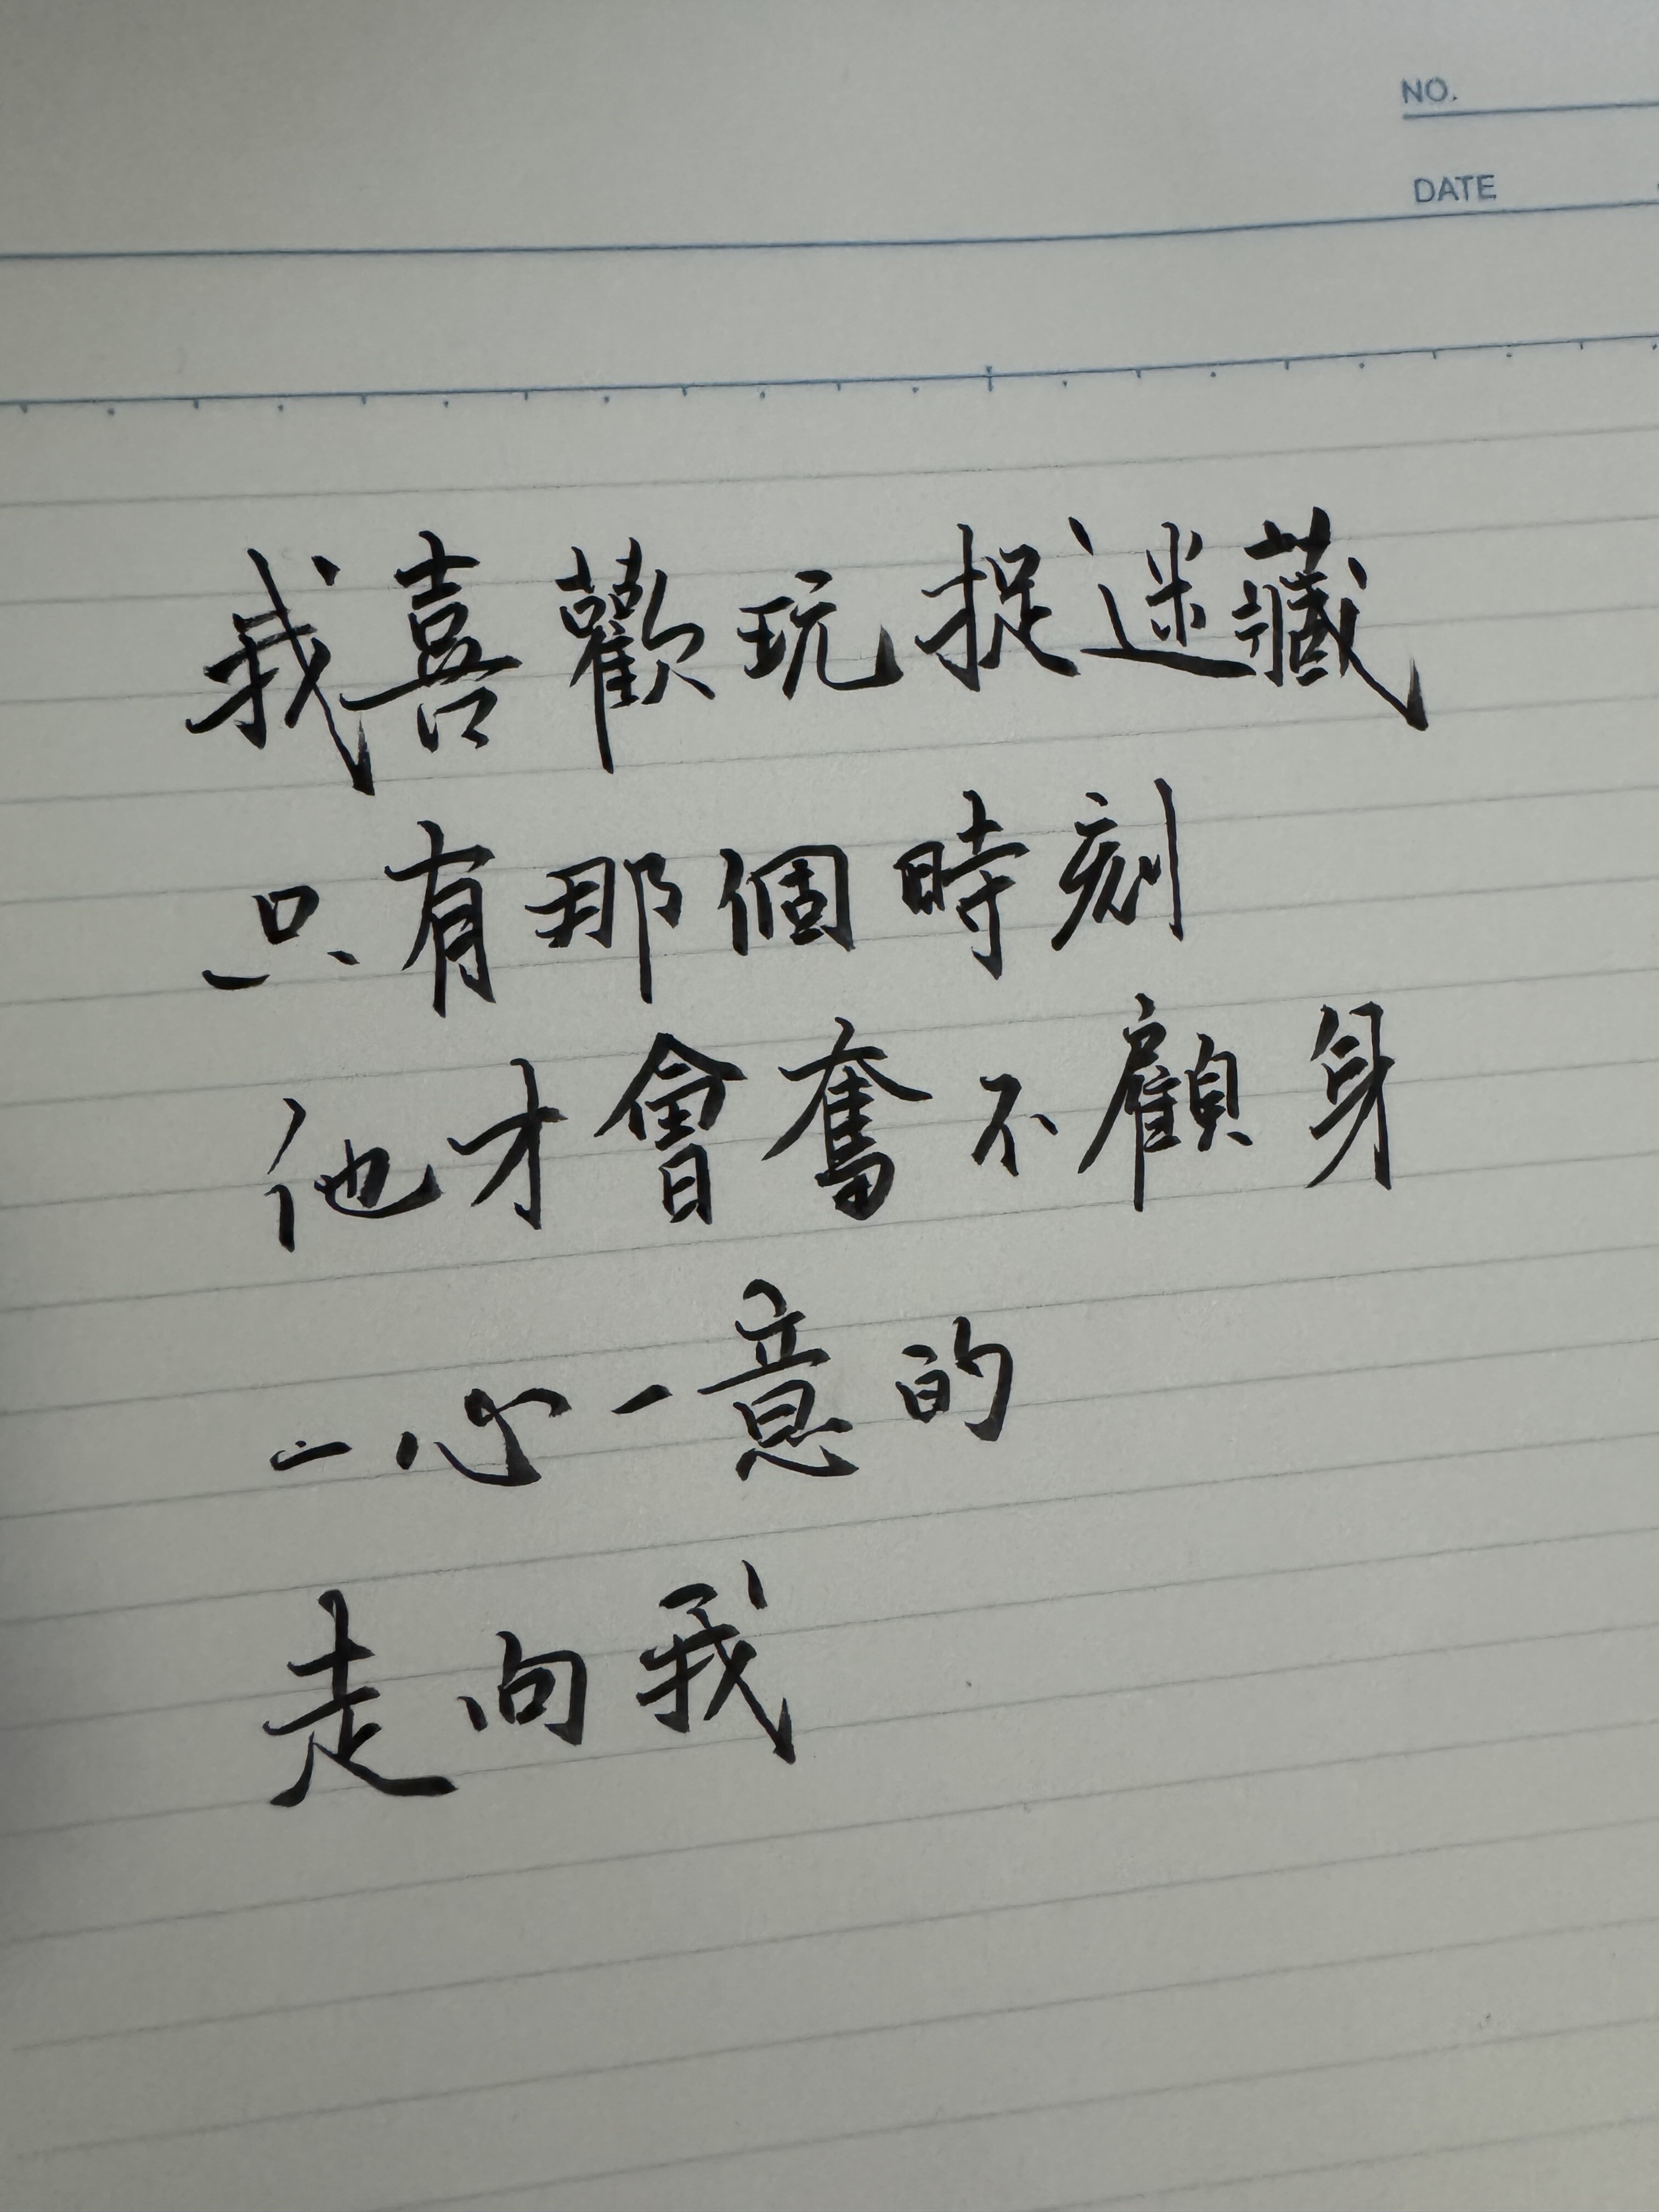 NO.
DATE
我喜歡玩捉迷藏
只有那個時刻
他才會奮不顧身
一心一意的
走向我